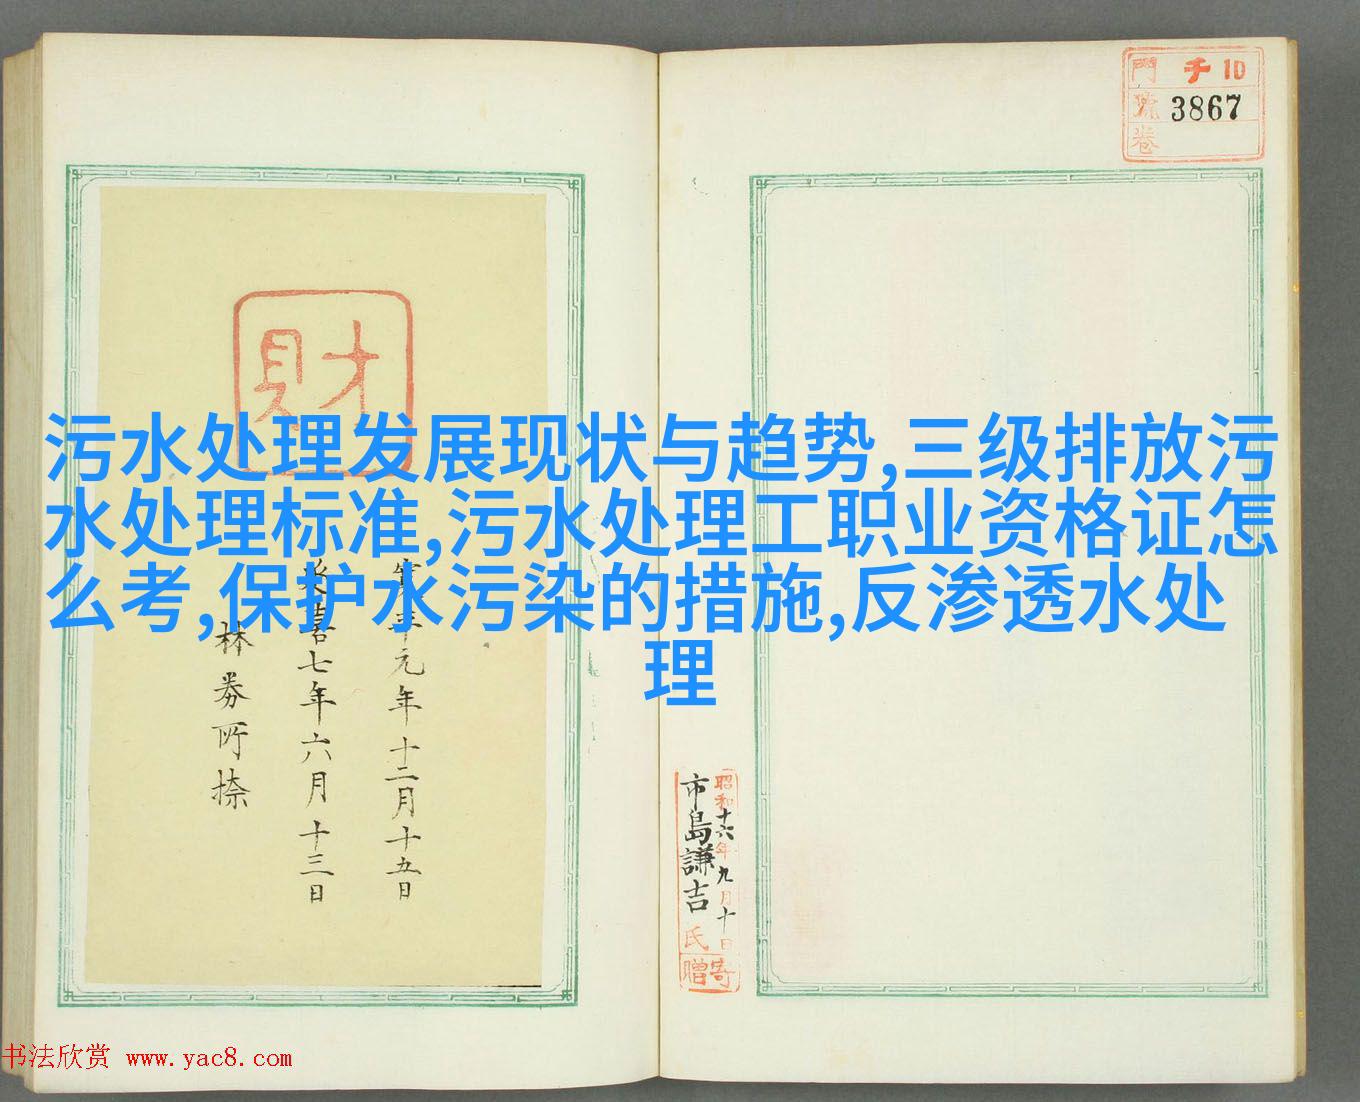 門 千10
號 3867
卷
財
污水处理发展现状与趋势,三级排放污
水处理标准,污水处理工职业资格证怎
么考,保护水污染的措施,反渗透水处
理
寶 元年十二月十五日
七年六月十三日
林
昭和十六年九月十日
市島謙吉氏
寄贈
书法欣赏 www.yac8.com